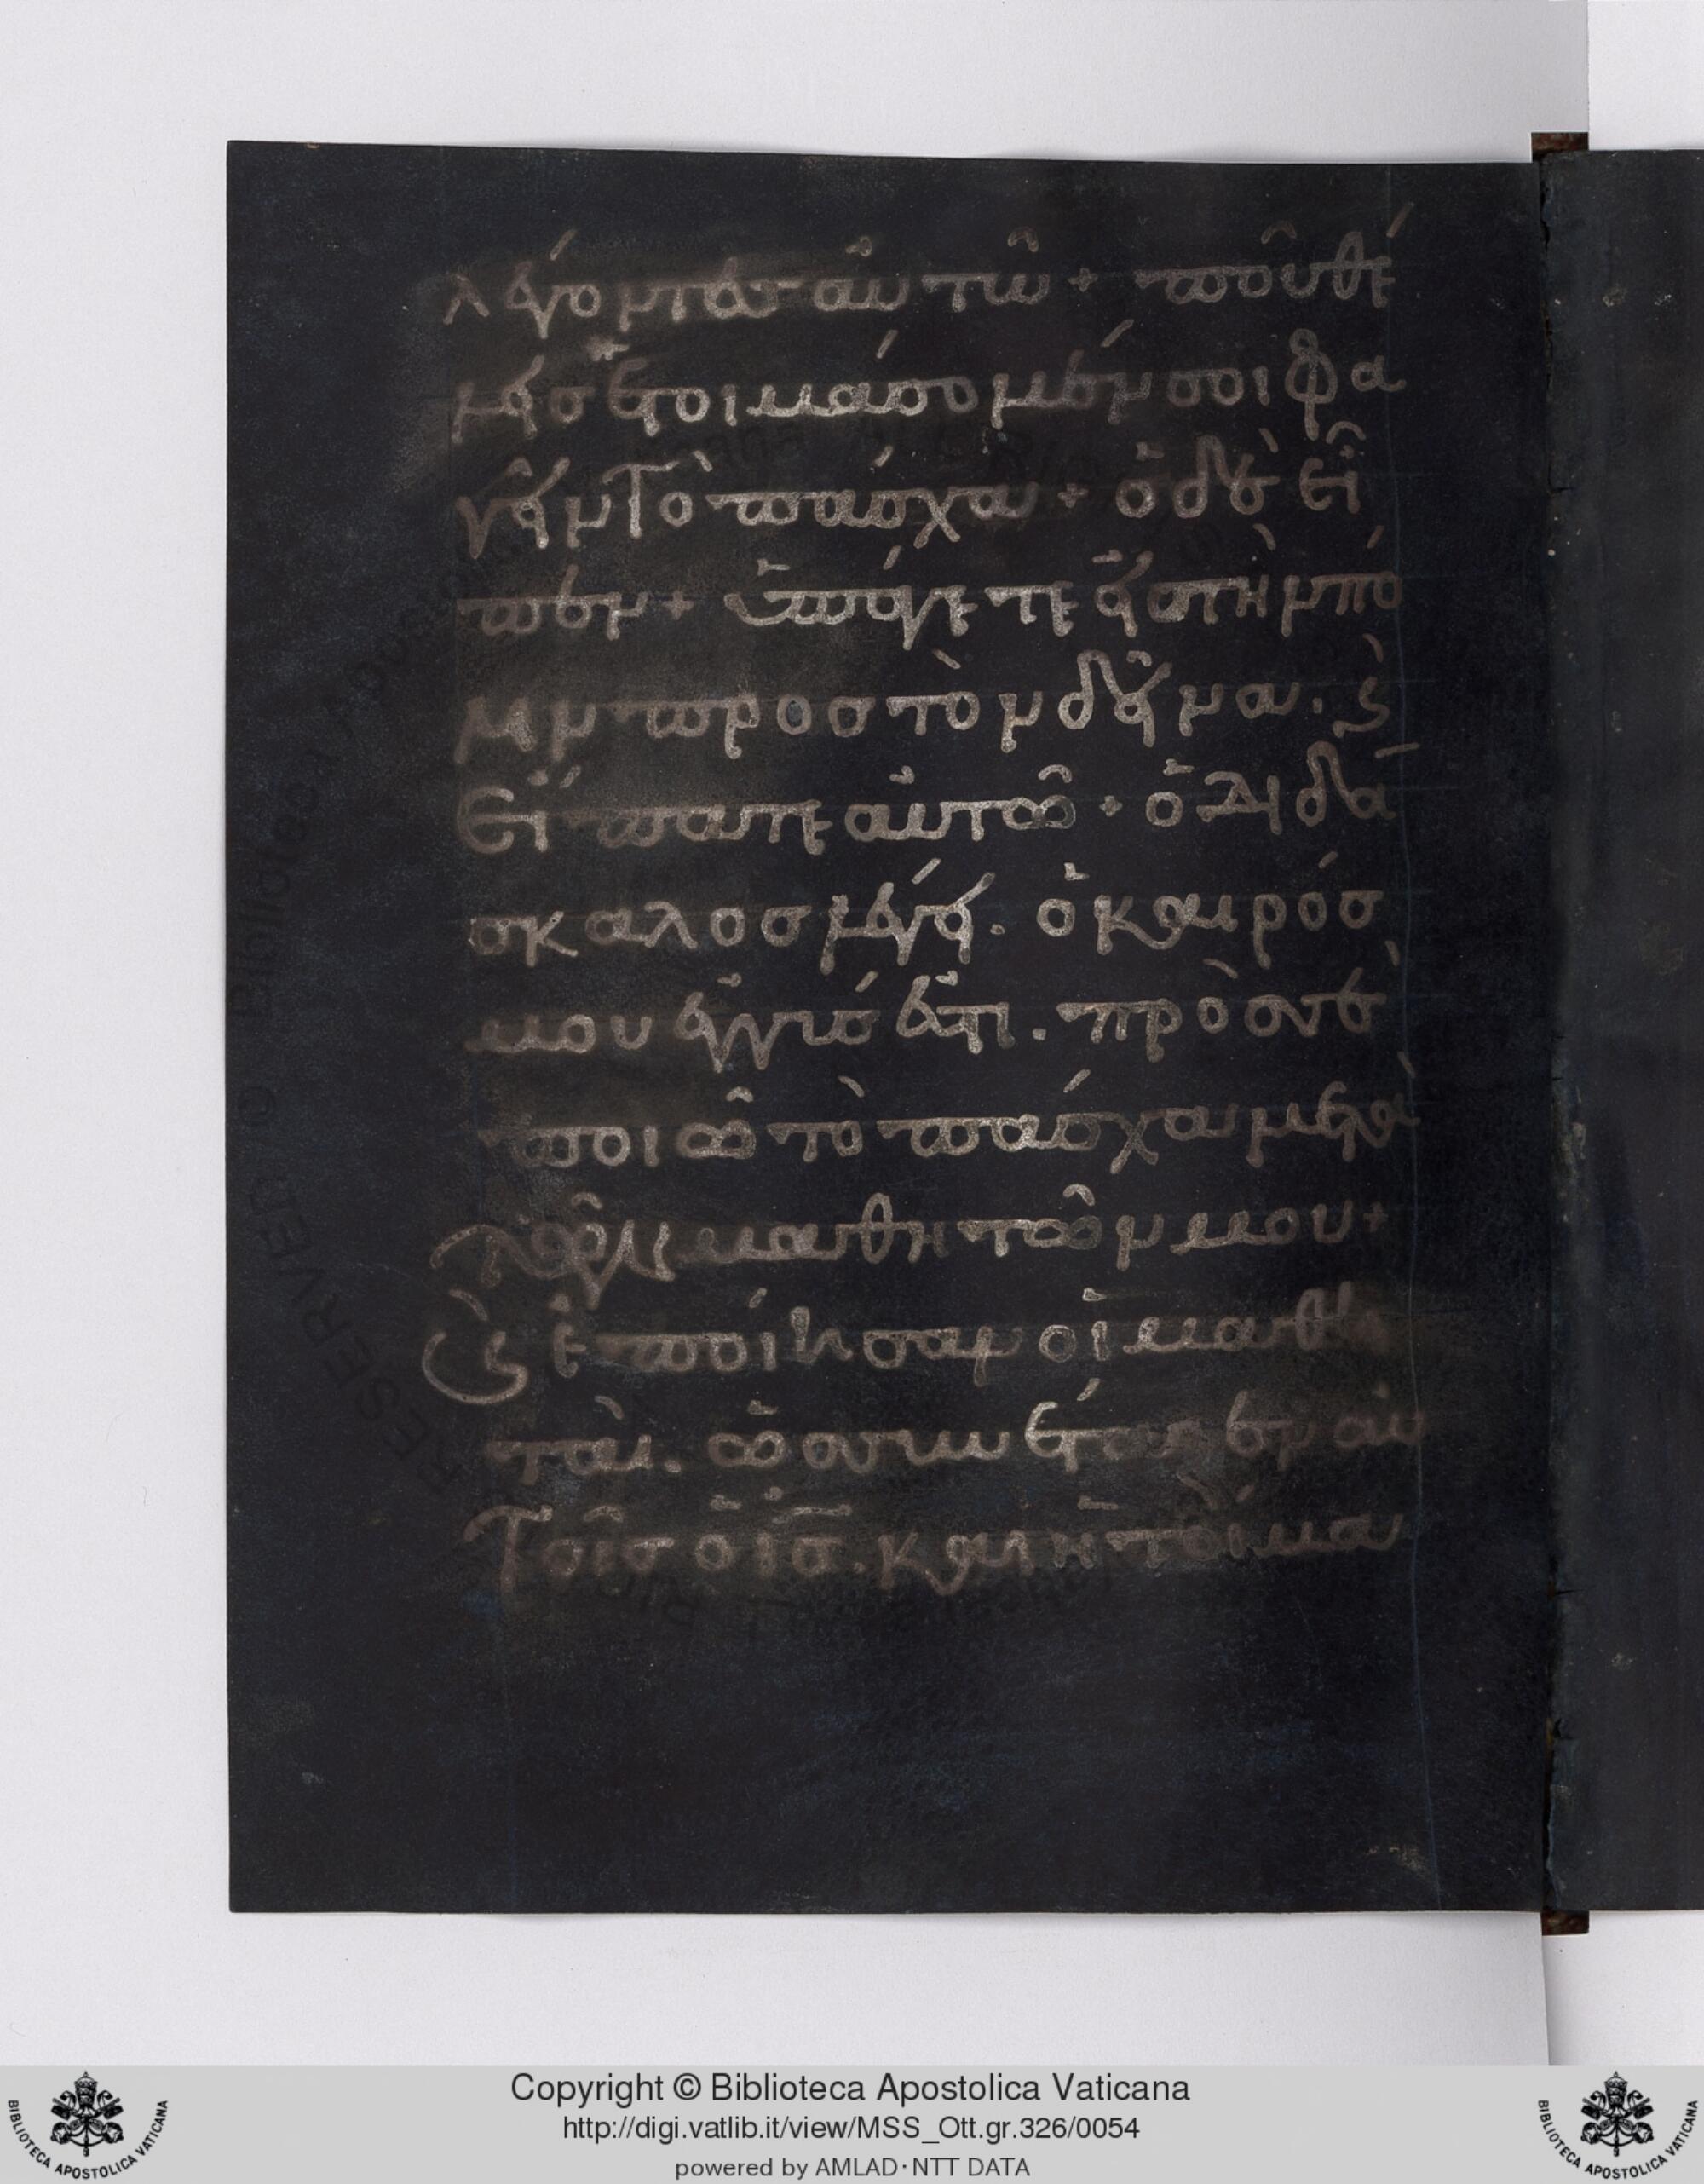 λέγοντες αὐτῶ + ποῦ θέ
λης ἑτοιμάσομέν σοι φα
γῆν τὸ πάσχα + ὁ δὲ εἶ
πεν + ὑπάγετε ἐς τὴν πό
λην προς τὸν δεῖνα. ϗ
εἴπατε αὐτῶ + ὁ διδά
σκαλος λέγει. ὁ καιρός
μου ἐγγύς ἐστι. πρὸς σὲ
ποιῶ τὸ πάσχα μετὰ
τῶν μαθητῶν μου +
ϗ ἐποίησαν οἱ μαθη
ταὶ. ὡς συνέταξεν αὐ
τοῖς ὁ ις. και ἡτοίμα
Copyright © Biblioteca Apostolica Vaticana
http://digi.vatlib.it/view/MSS_Ott.gr.326/0054
powered by AMLAD·NTT DATA
BIBLIOTECA APOSTOLICA VATICANA
BIBLIOTECA APOSTOLICA VATICANA